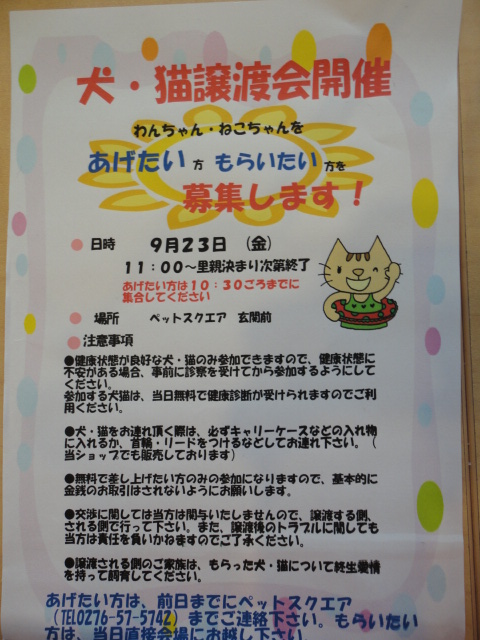 犬・猫譲渡会開催
わんちゃん・ねこちゃんを
あげたい 方 もらいたい 方を
募集します！
日時 9月23日 (金)
11：00〜里親決まり次第終了
あげたい方は10：30ごろまでに
集合してください
場所 ペットスクエア 玄関前
注意事項
●健康状態が良好な犬・猫のみ参加できますので、健康状態に
不安がある場合、事前に診察を受けてから参加するようにして
ください。
参加する犬猫は、当日無料で健康診断が受けられますのでご利
用ください。
●犬・猫をお連れ頂く際は、必ずキャリーケースなどの入れ物
に入れるか、首輪・リードをつけるなどしてお連れ下さい。（
当ショップでも販売しております）
●無料で差し上げたい方のみの参加になりますので、基本的に
金銭のお取引はされないようにお願いします。
●交渉に関しては当方は関与いたしませんので、譲渡する側、
される側で行って下さい。また、譲渡後のトラブルに関しても
当方は責任を負いかねますのでご了承ください。
●譲渡される側のご家族は、もらった犬・猫について終生愛情
を持って飼育してください。
あげたい方は、前日までにペットスクエア
（TEL0276-57-5742）までご連絡下さい。もらいたい
方は、当日直接会場にお越し下さい